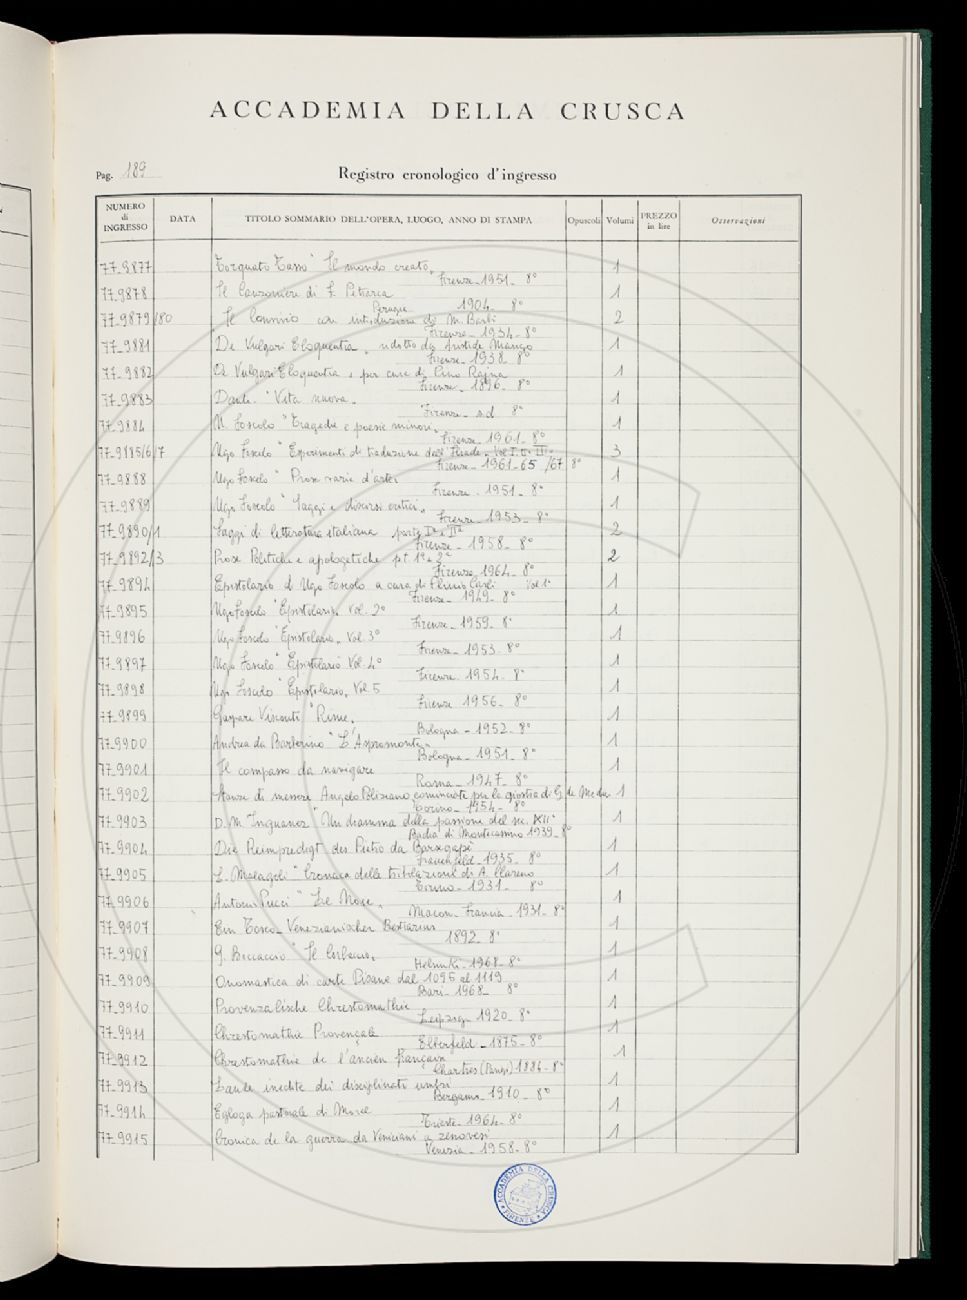 ACCADEMIA DELLA CRUSCA
Pag. 189
Registro cronologico d'ingresso
NUMERO di INGRESSO DATA TITOLO SOMMARIO DELL'OPERA, LUOGO, ANNO DI STAMPA Opuscoli Volumi PREZZO in lire Osservazioni
77_9877 Torquato Tasso "Il mondo creato" 1
Firenze 1951 - 8°
77_9878 Il Canzoniere di F. Petrarca 1
Perugia 1904 - 8°
77_9879/80 Il Convivio con introduzione di M. Barbi 2
Firenze - 1934 - 8°
77_9881 De Vulgari Eloquentia, ridotto da Aristide Marigo 1
Firenze - 1938 - 8°
77_9882 De Vulgari Eloquentia, per cura di Pino Rajna 1
Firenze - 1896 - 8°
77_9883 Dante. "Vita nuova" 1
Firenze - s.d. 8°
77_9884 U. Foscolo "Tragedie e poesie minori" 1
Firenze - 1961 - 8°
77_9885/6/7 Ugo Foscolo "Esperimenti di traduzione dell'Iliade - Vol I. II. III 3
Firenze - 1961-65/67 8°
77_9888 Ugo Foscolo "Prose varie d'arte" 1
Firenze - 1951 - 8°
77_9889 Ugo Foscolo "Saggi e discorsi critici" 1
Firenze - 1953 - 8°
77_9890/1 Saggi di letteratura italiana parte Iª e IIª 2
Firenze - 1958 - 8°
77_9892/3 Prose Politiche e apologetiche pt 1ª e 2ª 2
Firenze 1964 - 8°
77_9894 Epistolario di Ugo Foscolo a cura di Plinio Carli Vol 1° 1
Firenze - 1949 - 8°
77_9895 Ugo Foscolo "Epistolario, Vol. 2° 1
Firenze - 1959 - 8°
77_9896 Ugo Foscolo "Epistolario, Vol 3° 1
Firenze - 1953 - 8°
77_9897 Ugo Foscolo "Epistolario Vol. 4° 1
Firenze - 1954 - 8°
77_9898 Ugo Foscolo "Epistolario, Vol. 5 1
Firenze 1956 - 8°
77_9899 Gaspare Visconti "Rime" 1
Bologna - 1952 - 8°
77_9900 Andrea da Barberino "L'Aspramonte" 1
Bologna - 1951 - 8°
77_9901 Il compasso da navigare 1
Roma - 1947 - 8°
77_9902 Stanze di messere Angelo Poliziano cominciate per la giostra di G. de Medici 1
Torino - 1954 - 8°
77_9903 D. M. Inguanez "Un dramma della passione del sec. XII" 1
Badia di Montecassino 1939 - 8°
77_9904 Die Reimpredigt des Pietro da Barsegapè 1
Frauenfeld - 1935 - 8°
77_9905 L. Malagoli "Cronaca delle tribolazioni di A. Clareno 1
Torino - 1931 - 8°
77_9906 Antonio Pucci "Le Noie" 1
Macon - Francia - 1931 - 8°
77_9907 Ein Tosco-Venezianischer Bestiarius 1
1892 - 8°
77_9908 G. Boccaccio "Il Corbaccio" 1
Helsinki - 1968 - 8°
77_9909 Onomastica di carte Pisane dal 1095 al 1119 1
Bari - 1968 - 8°
77_9910 Provenzalische Chrestomathie 1
Leipzig 1920 - 8°
77_9911 Chrestomathie Provençale 1
Elberfeld - 1875 - 8°
77_9912 Chrestomathie de l'ancien français 1
Chartres (Parigi) 1884 - 8°
77_9913 Laude inedite dei disciplinati umbri 1
Bergamo - 1910 - 8°
77_9914 Egloga pastorale di Morel 1
Trieste - 1964 - 8°
77_9915 Cronica de la guerra da Veniciani a zenovesi 1
Venezia - 1958 - 8°
ACCADEMIA DELLA CRUSCA
FIRENZE